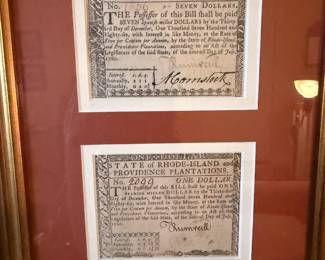 SEVEN DOLLARS.
THE Possessor of this Bill shall be paid
SEVEN Spanish milled DOLLARS by the Thirty-
first Day of December, One Thousand Seven Hundred and
Eighty-six, with Interest in like Money, at the Rate of
Five per Centum per Annum, by the State of Rhode-Island
and Providence Plantations, according to an Act of the
Legislature of the said State, of the Second Day of July,
1780.
Interest.
Annually,
Monthly,
STATE of RHODE-ISLAND and
PROVIDENCE PLANTATIONS.
No. 2099 ONE DOLLAR.
THE Possessor of this BILL shall be paid ONE
SPANISH MILLED DOLLAR by the Thirty-first
Day of December, One Thousand Seven Hundred and
Eighty-six, with Interest in like Money, at the Rate of
Five per Centum per Annum, by the State of Rhode-Island
and Providence Plantations, according to an Act of the Legislature
of the said State, of the Second Day of July,
1780.
Interest.
Annually,
Monthly,